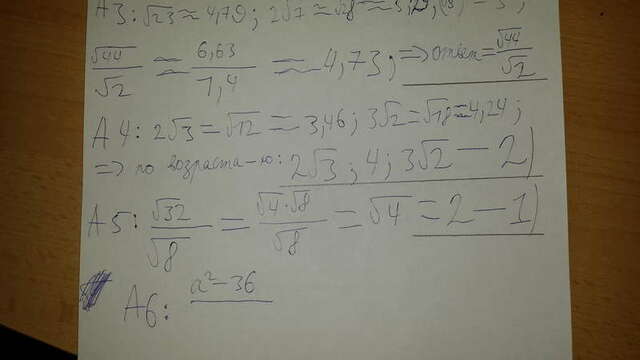 А3: √23 ≈ 4,79; 2√7 = √28 ≈
√44/√2 ≈ 6,63/1,4 ≈ 4,73; => ответ = √44/√2
А4: 2√3 = √12 ≈ 3,46; 3√2 = √18 ≈ 4,24;
=> по возраста-ю: 2√3; 4; 3√2 – 2)
А5: √32/√8 = √4·√8/√8 = √4 = 2 – 1)
А6: a²–36